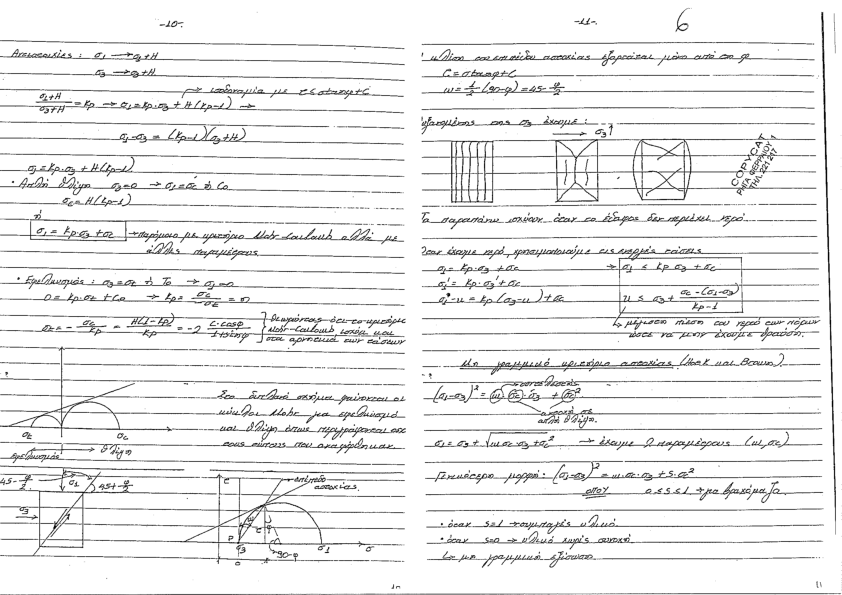 -10-
Αντιστοιχίες : σ1 → σ1+H
σ3 → σ3+H
→ ισοδυναμία με τ=σtanφ+C
σ1+H / σ3+H = Kp → σ1=Kp·σ3 + H(Kp-1) →
σ1-σ3 = (Kp-1)(σ3+H)
σ1=Kp·σ3 + H(Kp-1)
• Απλή θλίψη σ3=0 → σ1=σc ή Co
σc=H(Kp-1)
ή
σ1 = Kp·σ3+σc → παρόμοιο με κριτήριο Mohr-Coulomb αλλά με
άλλες παραμέτρους
• Εφελκυσμός : σ3=σt ή To → σ1=0
0 = Kp·σt + Co → Kp = σc / -σt = m
σt = - σc / Kp = H(1-Kp) / Kp = -2 C·cosφ / 1+sinφ
θεωρώντας ότι το κριτήριο
Mohr-Coulomb ισχύει και
στα αρνητικά των τάσεων
Στο διπλανό σχήμα φαίνονται οι
κύκλοι Mohr για εφελκυσμό
και θλίψη όπως περιγράφονται από
τους τύπους που αναφέρθηκαν.
σt σc
Εφελκυσμός θλίψη
45-φ/2 σ1 45+φ/2
σ3
τ επίπεδο
αστοχίας
P σ3 σ1 σ
90-φ
10
-11-
6
κλίση του επιπέδου αστοχίας εξαρτάται μόνο από τη φ
τ=σtanφ+C
ω=1/2(90-φ)=45-φ/2
εξαρτημένης της σ3 έχουμε :
σ3↑
COPYCAT
ΡΗΓΑ ΦΕΡΡΑΙΟΥ 1
ΤΗΛ. 221217
Τα παραπάνω ισχύουν όταν το έδαφος δεν περιέχει νερό
Όταν έχουμε νερό, χρησιμοποιούμε τις ενεργές τάσεις
σ1= Kp·σ3 + σc → σ1 ≤ Kp σ3 + σc
σ1' = Kp·σ3' + σc
σ1-u = Kp(σ3-u)+σc u ≤ σ3 + σc-(σ1-σ3) / Kp-1
↳ μέγιστη πίεση του νερού των πόρων
ώστε να μην έχουμε θραύση.
Μη γραμμικό κριτήριο αστοχίας (Hoek και Brown).
(σ1-σ3)² = m·σc·σ3 + σc²
αντοχή σε
απλή θλίψη.
σ1=σ3+√mσc·σ3+σc² → έχουμε 2 παραμέτρους (m,σc)
Γενικότερη μορφή: (σ1-σ3)² = m·σc·σ3 + S·σc²
όπου 0≤S≤1 → για βραχόμαζα.
• όταν s=1 → συμπαγές υλικό.
• όταν s=0 → υλικό χωρίς συνοχή.
↳ μη γραμμική εξίσωση.
11